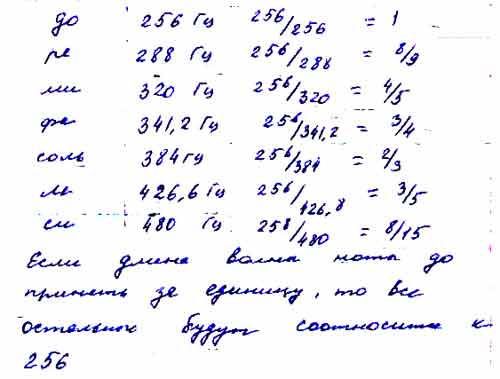 до 256 Гц 256/256 = 1
ре 288 Гц 256/288 = 8/9
ми 320 Гц 256/320 = 4/5
фа 341,2 Гц 256/341,2 = 3/4
соль 384 гц 256/384 = 2/3
ля 426,6 Гц 256/426,8 = 3/5
си 480 Гц 258/480 = 8/15
Если длина волны нота до
принять за единицу, то все
остальные будут соотносится к
256